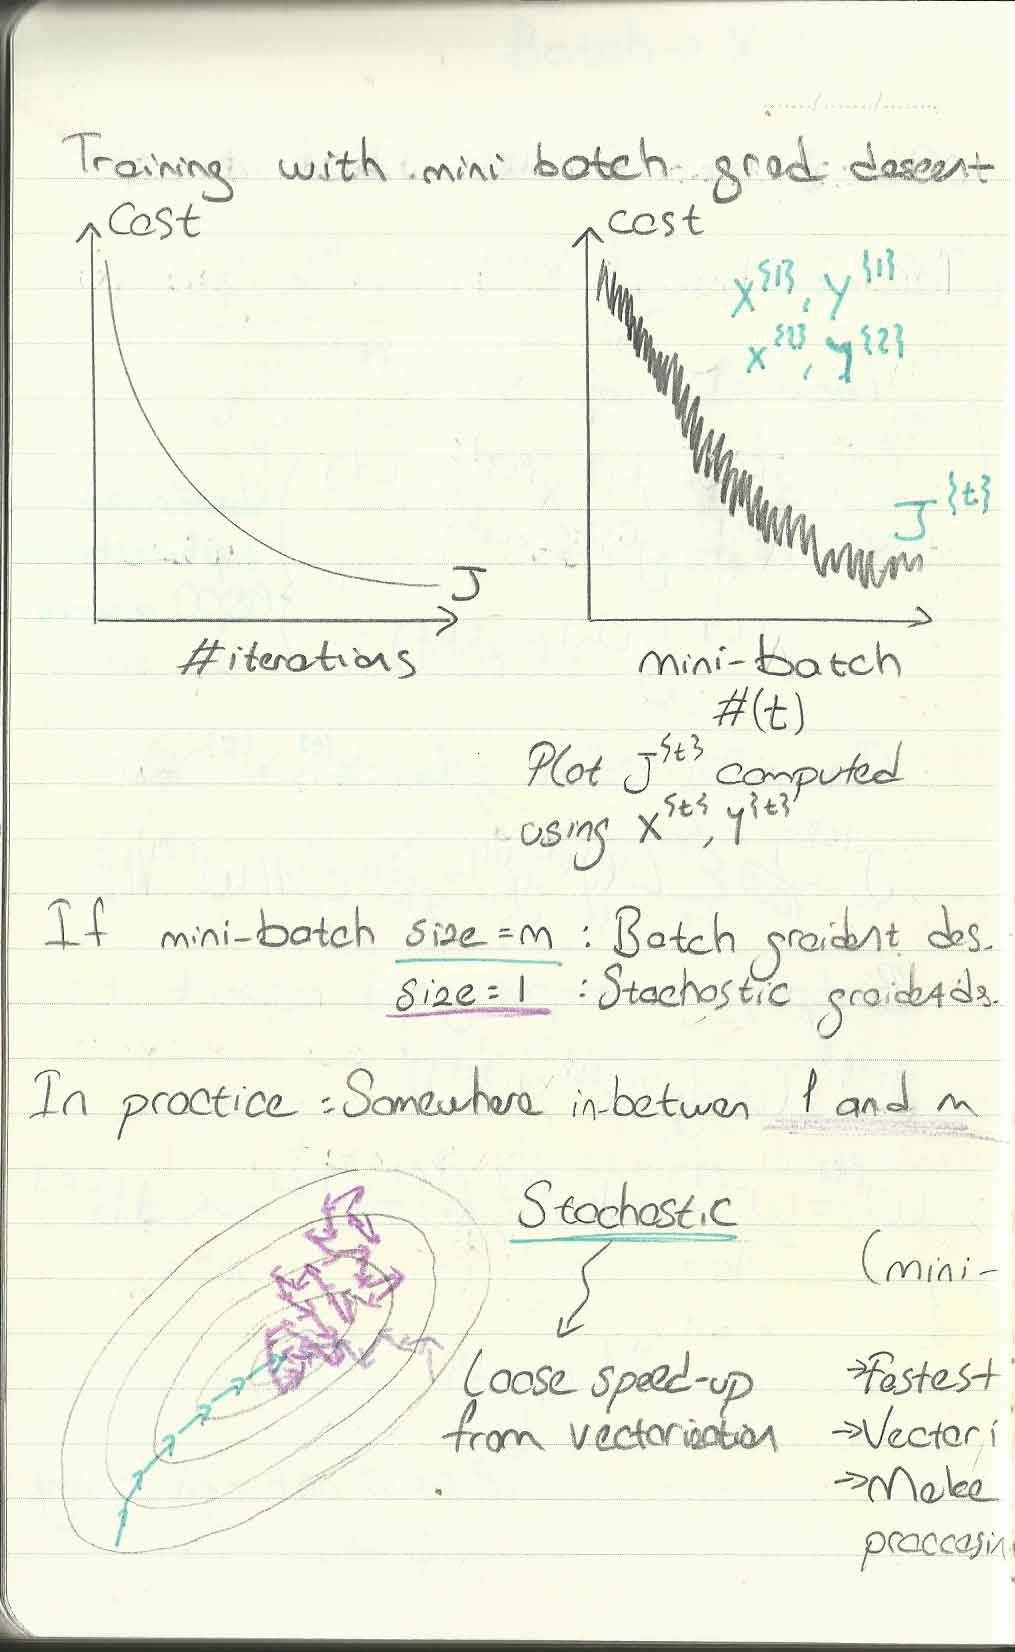 Training with mini batch grad descent
Cost
cost
X^{1}, Y^{1}
X^{2}, Y^{2}
J^{t}
J
#iterations
mini-batch
#(t)
Plot J^{t} computed
using X^{t}, Y^{t}
If mini-batch size = m : Batch graident des.
size = 1 : Stachostic
In practice : Somewhere in-betwen 1 and m
Stochostic
(mini-
Loose speed-up
from vectorization
→Fastest
→Vectori
→Make
proccasin